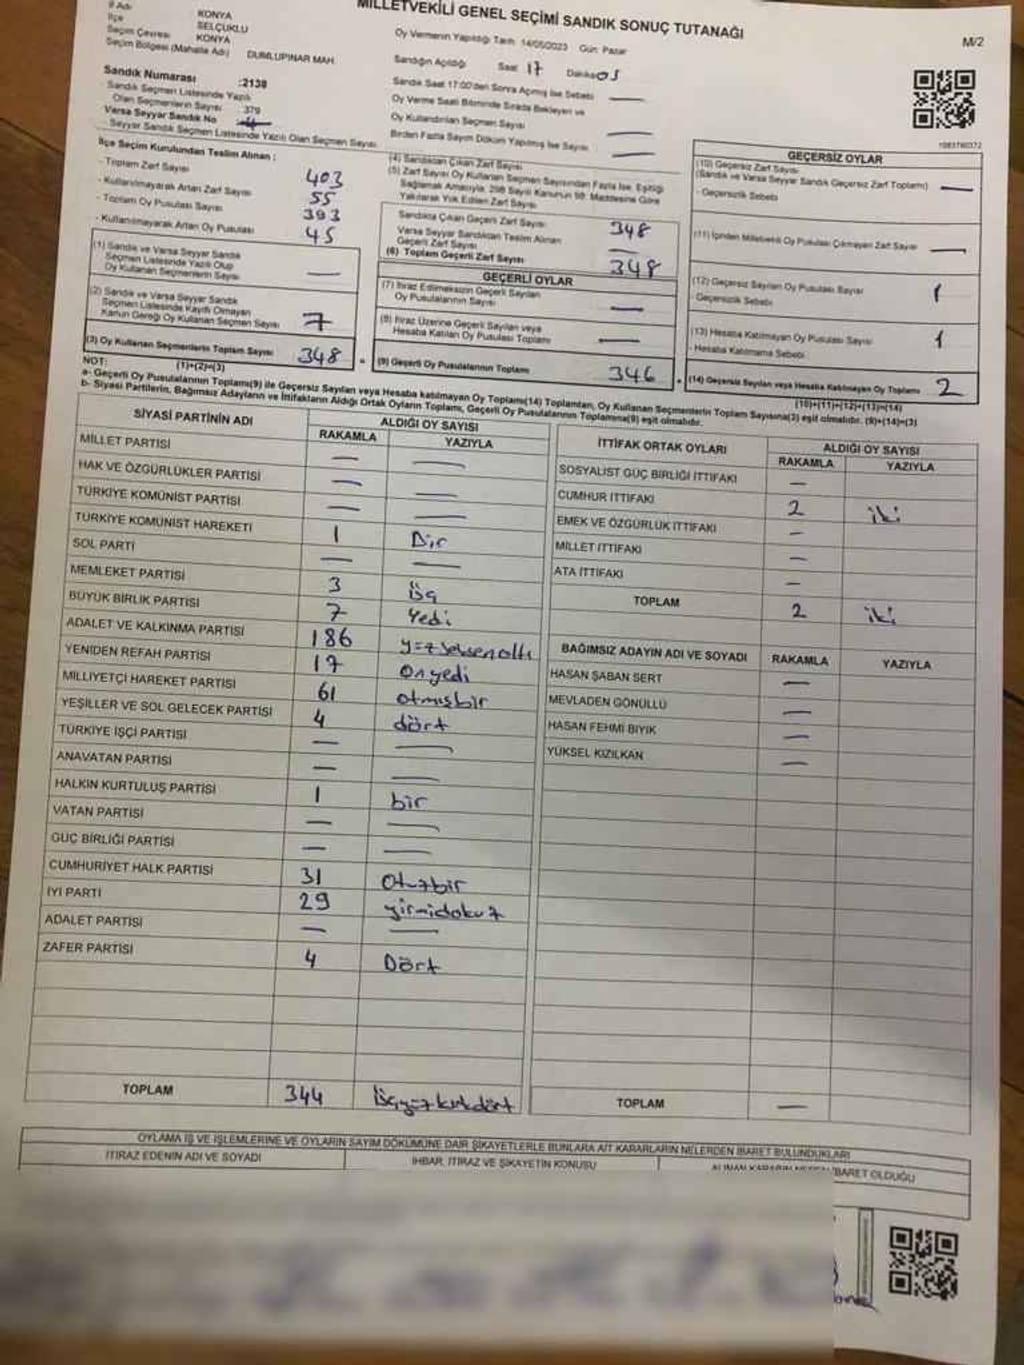 MİLLETVEKİLİ GENEL SEÇİMİ SANDIK SONUÇ TUTANAĞI
M/2
İl Adı KONYA
İlçe SELÇUKLU
Seçim Çevresi KONYA
Seçim Bölgesi (Mahalle Adı) DUMLUPINAR MAH.
Oy Vermenin Yapıldığı Tarih: 14/05/2023 Gün: Pazar
Sandığın Açıldığı Saat 17 Dakika 05
Sandık Saat 17:00'den Sonra Açılmış İse Sebebi —
Oy Verme Saati Bitiminde Sırada Bekleyen ve
Oy Kullandırılan Seçmen Sayısı —
Birden Fazla Sayım Döküm Yapılmış İse Sayısı —
Sandık Numarası :2138
Sandık Seçmen Listesinde Yazılı
Olan Seçmenlerin Sayısı : 379
Varsa Seyyar Sandık No
Seyyar Sandık Seçmen Listesinde Yazılı Olan Seçmen Sayısı
İlçe Seçim Kurulundan Teslim Alınan :
- Toplam Zarf Sayısı 403
- Kullanılmayarak Artan Zarf Sayısı 55
- Toplam Oy Pusulası Sayısı 393
- Kullanılmayarak Artan Oy Pusulası 45
(1) Sandık ve Varsa Seyyar Sandık
Seçmen Listesinde Yazılı Olup
Oy Kullanan Seçmenlerin Sayısı —
(2) Sandık ve Varsa Seyyar Sandık
Seçmen Listesinde Kayıtlı Olmayan
Kanun Gereği Oy Kullanan Seçmen Sayısı 7
(3) Oy Kullanan Seçmenlerin Toplam Sayısı 348
(1)+(2)=(3)
(4) Sandıktan Çıkan Zarf Sayısı
(5) Zarf Sayısı Oy Kullanan Seçmen Sayısından Fazla İse, Eşitliği
Sağlamak Amacıyla, 298 Sayılı Kanunun 98. Maddesine Göre
Yakılarak Yok Edilen Zarf Sayısı
Sandıkta Çıkan Geçerli Zarf Sayısı 348
Varsa Seyyar Sandıktan Teslim Alınan
Geçerli Zarf Sayısı —
(6) Toplam Geçerli Zarf Sayısı 348
GEÇERLİ OYLAR
(7) İtiraz Edilmeksizin Geçerli Sayılan
Oy Pusulalarının Sayısı —
(8) İtiraz Üzerine Geçerli Sayılan veya
Hesaba Katılan Oy Pusulası Toplamı —
(9) Geçerli Oy Pusulalarının Toplamı 346
1083780372
GEÇERSİZ OYLAR
(10) Geçersiz Zarf Sayısı
(Sandık ve Varsa Seyyar Sandık Geçersiz Zarf Toplamı) —
- Geçersizlik Sebebi
(11) İçinden Milletvekili Oy Pusulası Çıkmayan Zarf Sayısı —
(12) Geçersiz Sayılan Oy Pusulası Sayısı 1
- Geçersizlik Sebebi
(13) Hesaba Katılmayan Oy Pusulası Sayısı 1
- Hesaba Katılmama Sebebi
(14) Geçersiz Sayılan veya Hesaba Katılmayan Oy Toplamı 2
(10)+(11)+(12)+(13)=(14)
NOT:
a- Geçerli Oy Pusulalarının Toplamı(9) ile Geçersiz Sayılan veya Hesaba katılmayan Oy Toplamı(14) Toplamları, Oy Kullanan Seçmenlerin Toplam Sayısına(3) eşit olmalıdır. (9)+(14)=(3)
b- Siyasi Partilerin, Bağımsız Adayların ve İttifakların Aldığı Ortak Oyların Toplamı, Geçerli Oy Pusulalarının Toplamına(9) eşit olmalıdır.
SİYASİ PARTİNİN ADI ALDIĞI OY SAYISI
RAKAMLA YAZIYLA
MİLLET PARTİSİ — —
HAK VE ÖZGÜRLÜKLER PARTİSİ — —
TÜRKİYE KOMÜNİST PARTİSİ — —
TÜRKİYE KOMÜNİST HAREKETİ 1 Bir
SOL PARTİ — —
MEMLEKET PARTİSİ 3 üç
BÜYÜK BİRLİK PARTİSİ 7 Yedi
ADALET VE KALKINMA PARTİSİ 186 yüzseksenaltı
YENİDEN REFAH PARTİSİ 17 Onyedi
MİLLİYETÇİ HAREKET PARTİSİ 61 otmışbir
YEŞİLLER VE SOL GELECEK PARTİSİ 4 dört
TÜRKİYE İŞÇİ PARTİSİ — —
ANAVATAN PARTİSİ — —
HALKIN KURTULUŞ PARTİSİ 1 bir
VATAN PARTİSİ — —
GÜÇ BİRLİĞİ PARTİSİ — —
CUMHURİYET HALK PARTİSİ 31 Otuzbir
İYİ PARTİ 29 yirmidokuz
ADALET PARTİSİ — —
ZAFER PARTİSİ 4 Dört
TOPLAM 344 üçyüzkırkdört
İTTİFAK ORTAK OYLARI ALDIĞI OY SAYISI
RAKAMLA YAZIYLA
SOSYALİST GÜÇ BİRLİĞİ İTTİFAKI —
CUMHUR İTTİFAKI 2 iki
EMEK VE ÖZGÜRLÜK İTTİFAKI —
MİLLET İTTİFAKI —
ATA İTTİFAKI —
TOPLAM 2 iki
BAĞIMSIZ ADAYIN ADI VE SOYADI RAKAMLA YAZIYLA
HASAN ŞABAN SERT —
MEVLADEN GÖNÜLLÜ —
HASAN FEHMİ BIYIK —
YÜKSEL KIZILKAN —
TOPLAM —
OYLAMA İŞ VE İŞLEMLERİNE VE OYLARIN SAYIM DÖKÜMÜNE DAİR ŞİKAYETLERLE BUNLARA AİT KARARLARIN NELERDEN İBARET BULUNDUKLARI
İTİRAZ EDENİN ADI VE SOYADI
İHBAR, İTİRAZ VE ŞİKAYETİN KONUSU
ALINAN KARARIN NEDEN İBARET OLDUĞU